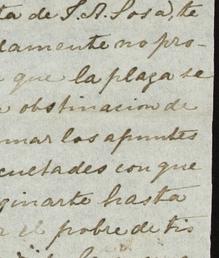 ta de S. A. Sosa, te
damente no pro-
que la plaga se
obstinacion de
mar los apuntes
cultades con que
ginarte hasta
r el pobre de tis